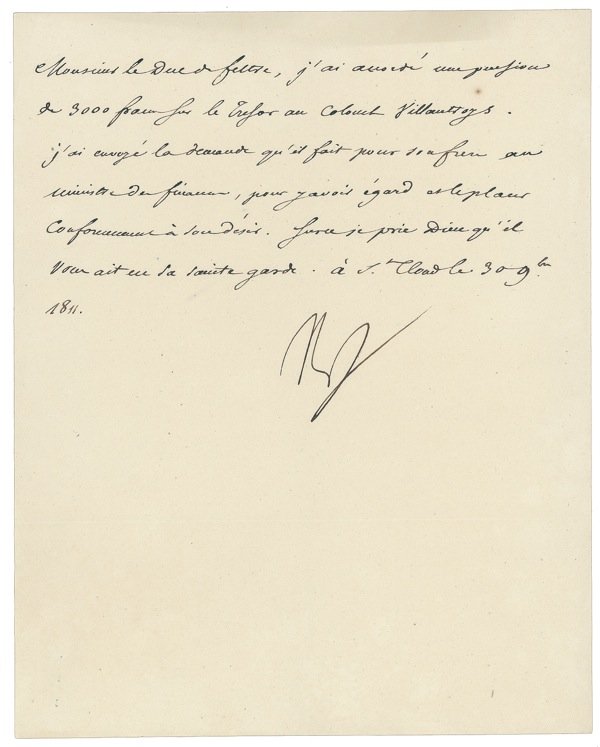 Monsieur le Duc de feltre, j'ai accordé une pension
de 3000 francs sur le Trésor au Colonel Villantroys.
j'ai envoyé la demande qu'il fait pour son frere au
ministre des finances, pour y avoir égard et le placer
Conformement à son désir. Sur ce je prie Dieu qu'il
vous ait en sa sainte garde. à St. Cloud le 30 9bre
1811.